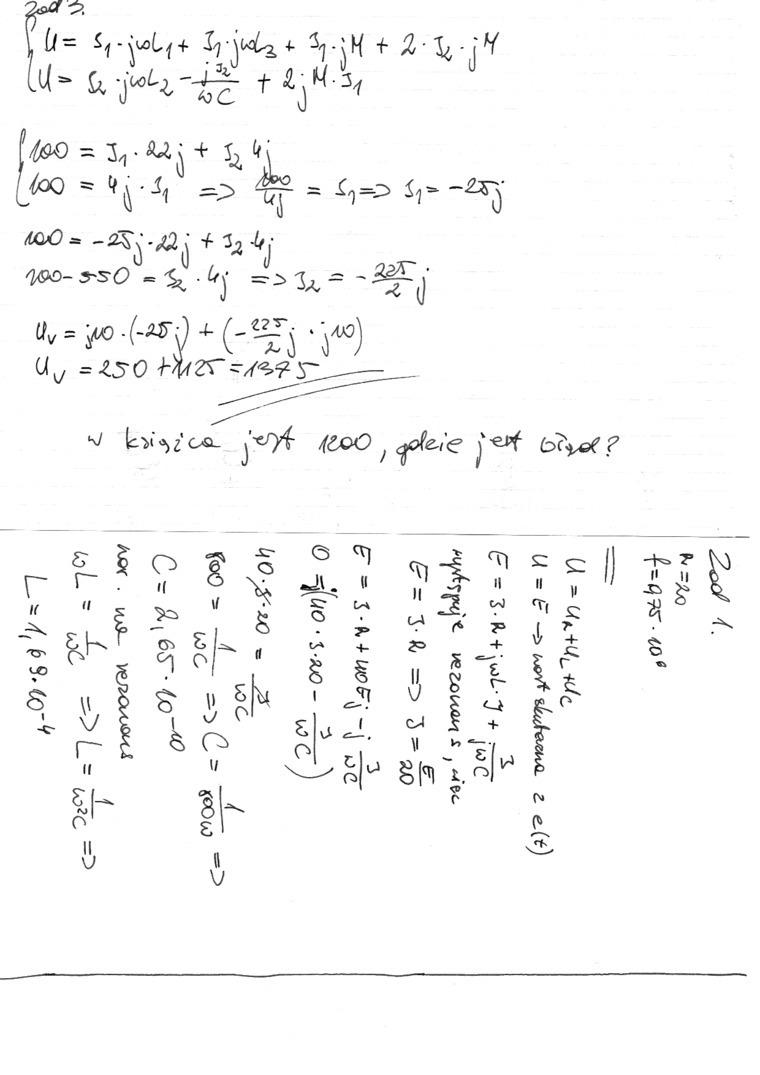 zad 3.
U = I₁·jωL₁ + I₁·jωL₃ + I₁·jM + 2·I₂·jM
U = I₂·jωL₂ - jI₂/ωC + 2jM·I₁
100 = I₁·22j + I₂ 4j
100 = 4j·I₁ => 100/4j = I₁ => I₁ = -25j
100 = -25j·22j + I₂·4j
100-550 = I₂·4j => I₂ = -225/2 j
U_V = j10·(-25j) + (-225/2 j · j10)
U_V = 250 + 1125 = 1375
w książce jest 1200, gdzie jest błąd?
Zad 1.
R=20
f=0,75·10⁶
U = U_R+U_L+U_C
U = E → wart skuteczna z e(t)
E = I·R+jωL·I + I/jωC
występuje rezonans, więc
E = I·R => I = E/20
E = I·R + 40Ej - j I/ωC
0 = j(40·I·20 - I/ωC)
40·I·20 = I/ωC
800 = 1/ωC => C = 1/800ω =>
C = 2,65·10⁻¹⁰
war. na rezonans
ωL = 1/ωC => L = 1/ω²C =>
L = 1,69·10⁻⁴